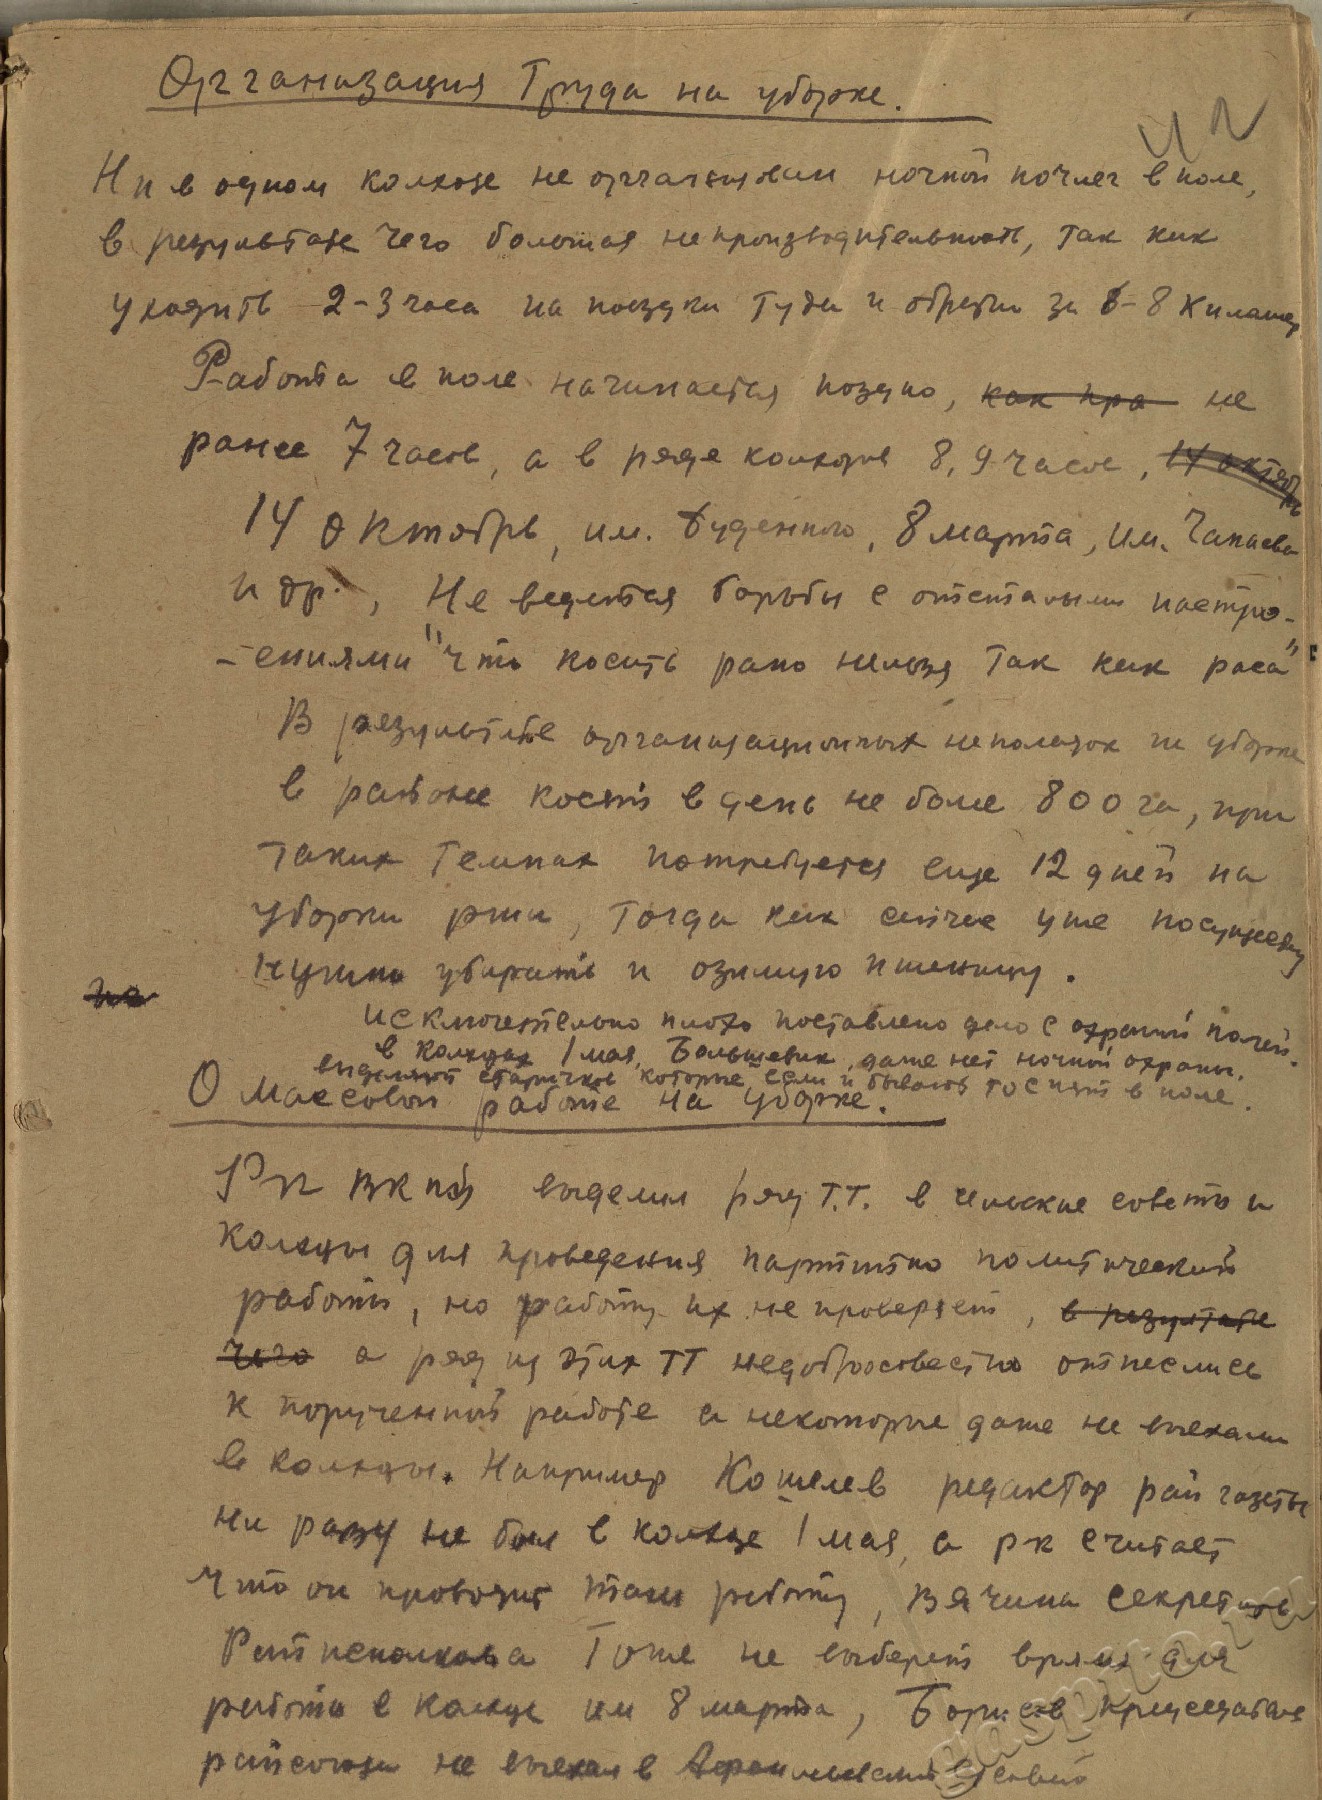 Организация Труда на уборке.
Ни в одном колхозе не организован ночной ночлег в поле,
в результате чего большая непроизводительность, так как
уходить 2-3 часа на поездки туда и обратно за 6-8 километр.
Работа в поле начинается поздно, как пра не
ранее 7 часов, а в ряде колхозов 8, 9 часов, 14 октябрь
14 Октябрь, им. Буденного, 8 марта, им. Чапаева
и др., Не ведется борьбы с отсталыми настро-
-ениями "что косить рано нельзя так как роса"
В результате организационных неполадок на уборке
в районе косят в день не более 800 га, при
таких темпах потребуется еще 12 дней на
уборки ржи, тогда как сейчас уже
нужно убирать и озимую пшеницу.
не
исключительно плохо поставлено дело с охраной полей.
в колхозах 1 мая, Большевик, даже нет ночной охраны.
выделяют старичков которые если и бывают то спят в поле.
О массовой работе на уборке.
РК ВКП(б) выделил ряд т.т. в сельские советы и
колхозы для проведения партийно политической
работы, но работу их не проверяет, в результате
чего а ряд из этих тт недобросовестно отнеслись
к порученной работе а некоторые даже не выехали
в колхозы. Например Кошелев редактор рай газеты
ни разу не был в колхозе 1 мая, а рк считает
что он проводит там работу, Вячина секретарь
Райисполкома тоже не выберет время для
работы в колхозе им 8 марта, Борисов
райсоюза не выехал в
gaspito.ru